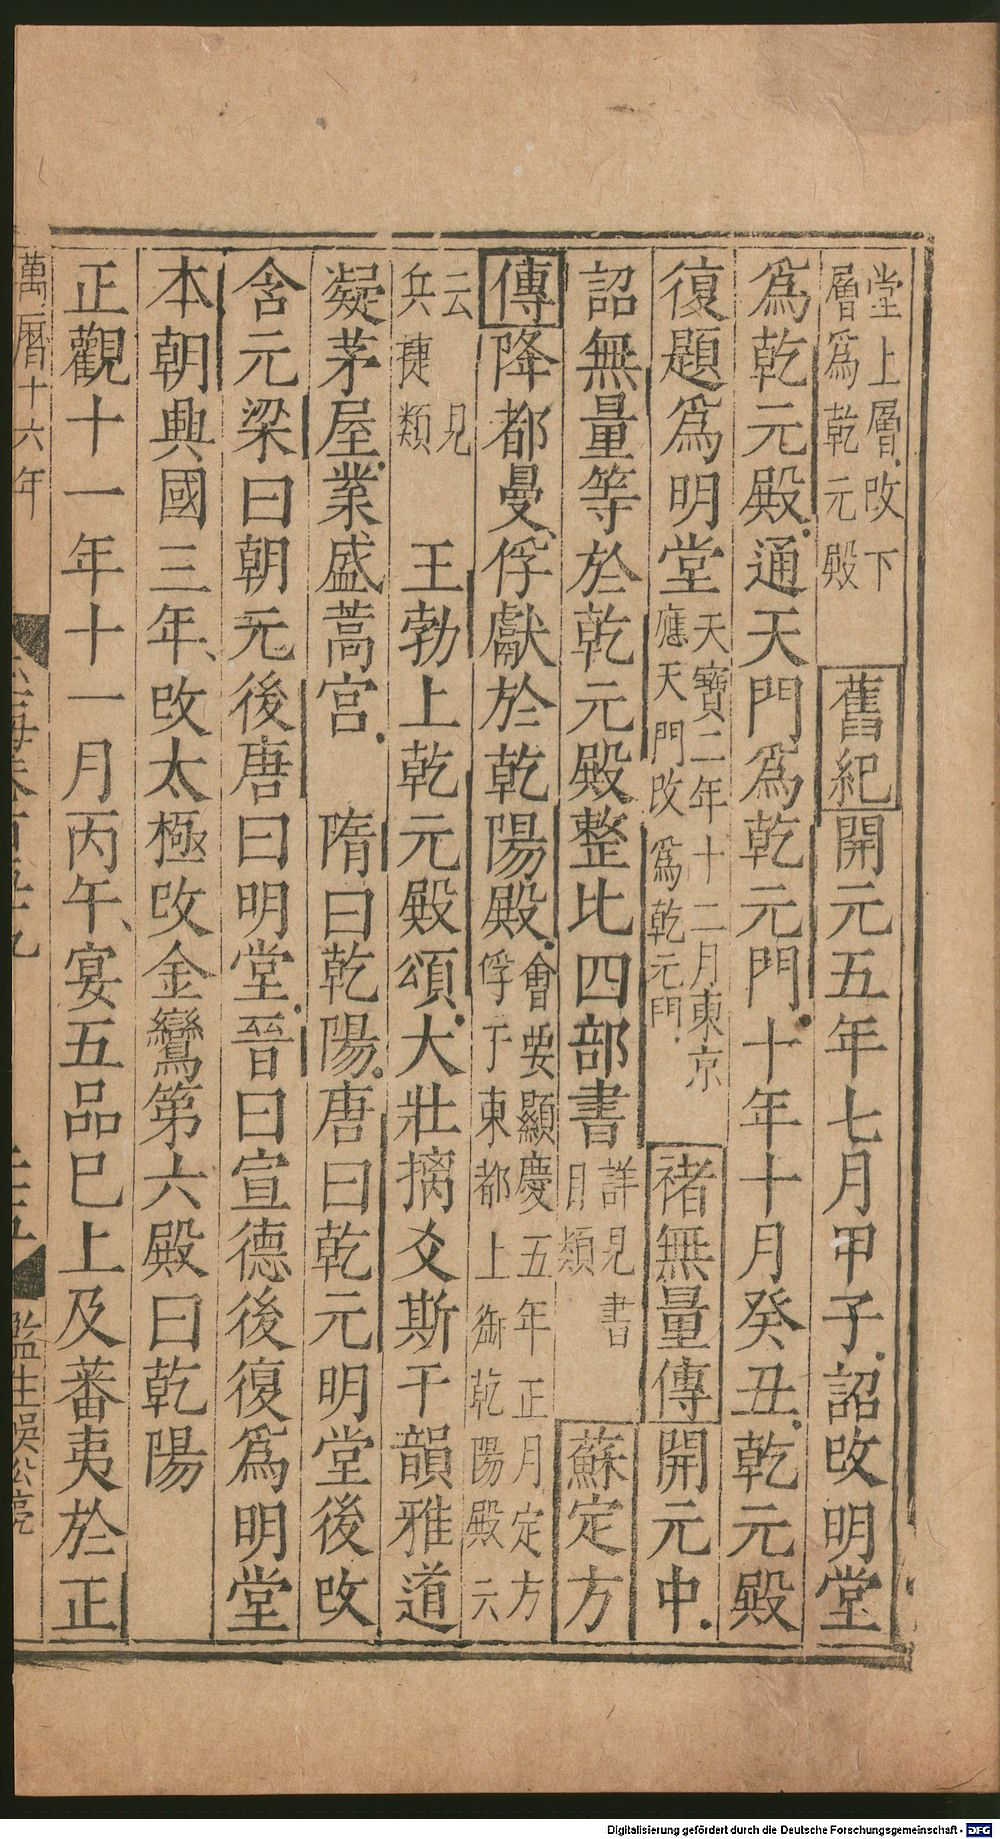 堂上層改下
層爲乾元殿
舊紀開元五年七月甲子詔改明堂
爲乾元殿通天門爲乾元門十年十月癸丑乾元殿
復題爲明堂
天寶二年十二月東京
應天門改爲乾元門
褚無量傳開元中
詔無量等於乾元殿整比四部書
詳見書
目類
蘇定方
傳降都曼俘獻於乾陽殿
會要顯慶五年正月定方
俘于東都上御乾陽殿云
云見
兵捷類
王勃上乾元殿頌大壯摛爻斯干韻雅道
凝茅屋業盛蒿宮 隋曰乾陽唐曰乾元明堂後改
含元梁曰朝元後唐曰明堂晉曰宣德後復爲明堂
本朝興國三年改太極改金鸞第六殿曰乾陽
正觀十一年十一月丙午宴五品巳上及蕃夷於正
萬曆十六年
監生吳
Digitalisierung gefördert durch die Deutsche Forschungsgemeinschaft - DFG